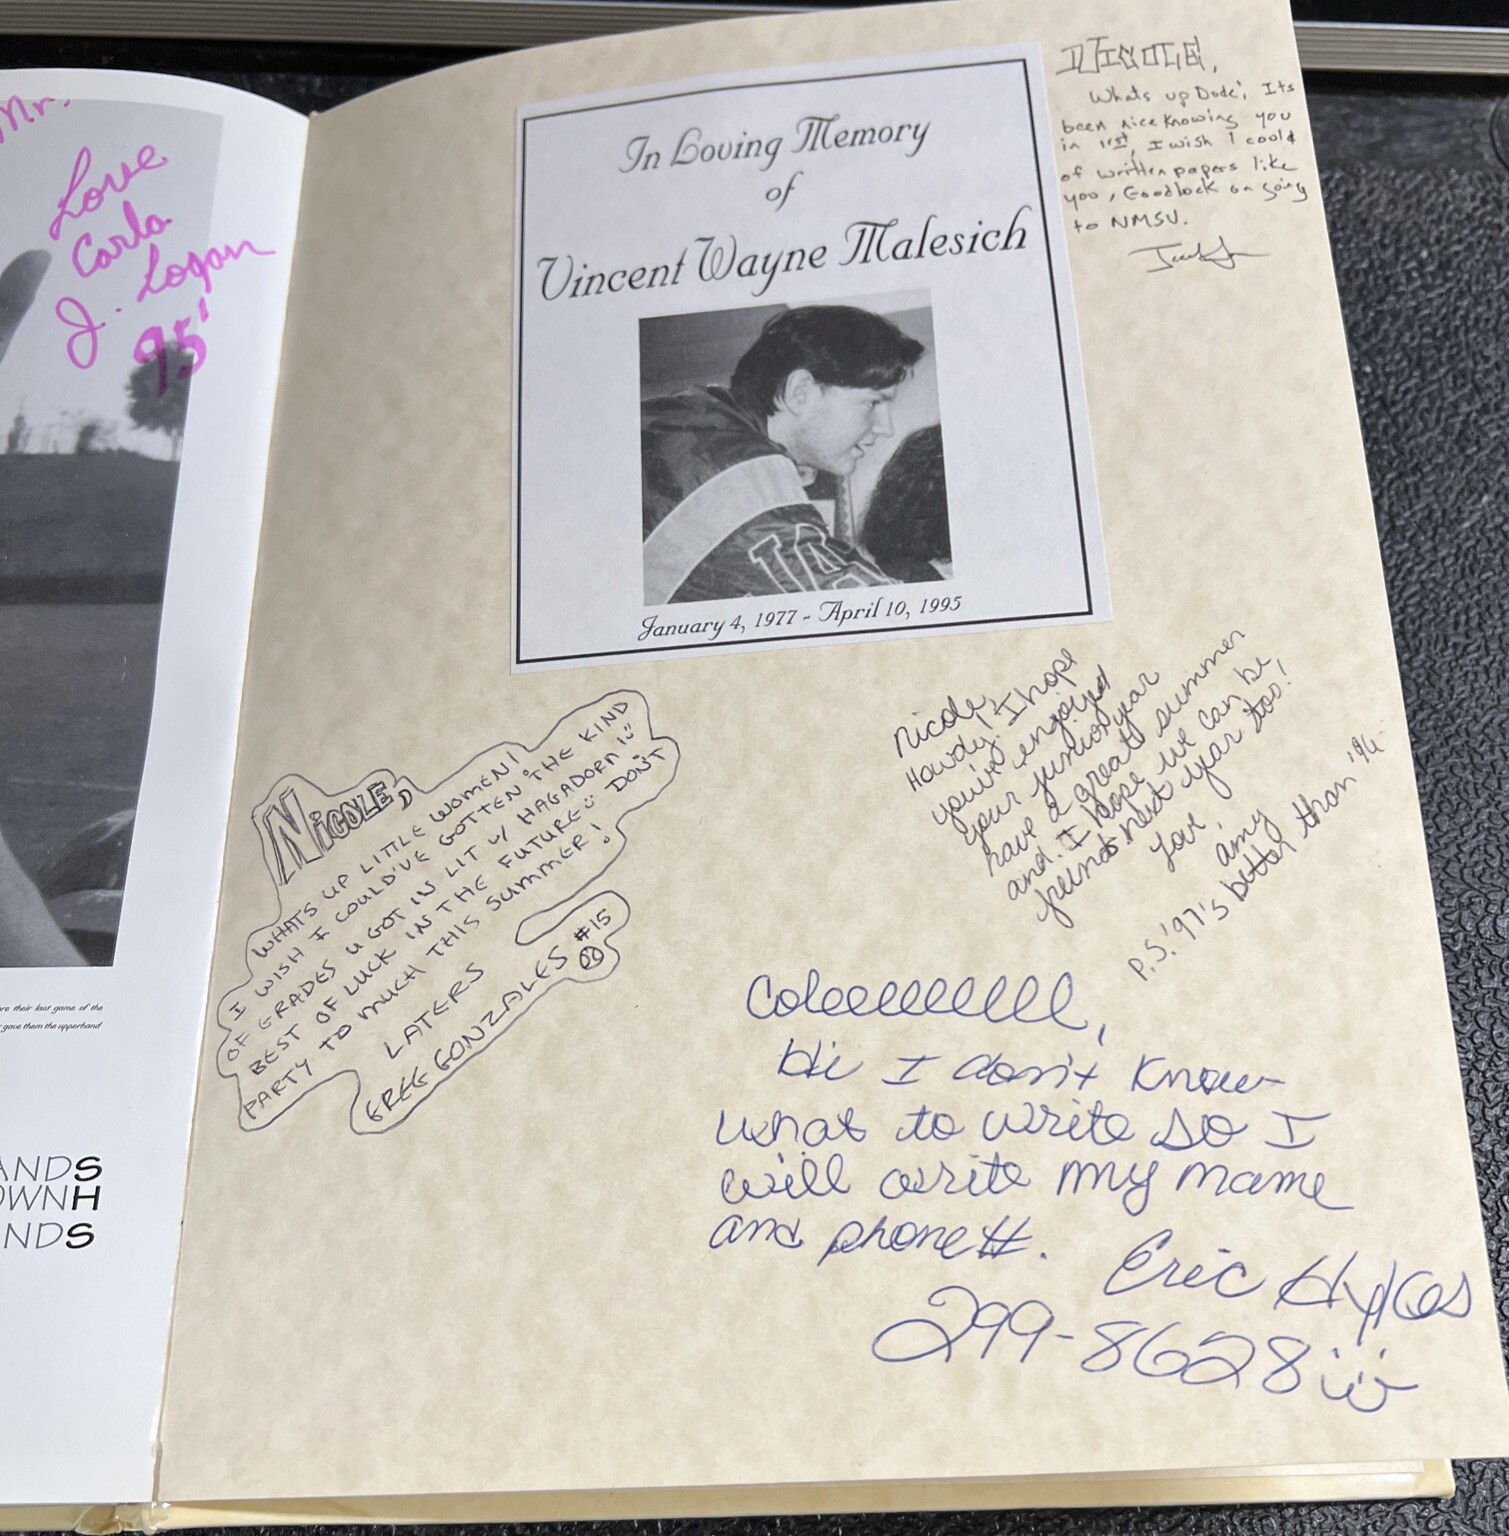 Mr.
Love
Carla
J. Logan
95'
re their last game of the
gave them the upperhand
ANDS
OWNH
NDS
In Loving Memory
of
Vincent Wayne Malesich
LA
January 4, 1977 - April 10, 1995
NICOLE,
Whats up Dude, Its
been nice knowing you
in 1st, I wish I could
of written papers like
you, Goodluck on going
to NMSU.
NICOLE,
WHATS UP LITTLE WOMEN!
I WISH I COULD'VE GOTTEN THE KIND
OF GRADES U GOT IN LIT W/ HAGADORN!
BEST OF LUCK IN THE FUTURE DON'T
PARTY TO MUCH THIS SUMMER!
LATERS
GREG GONZALES #15
Nicole,
Howdy! I hope
you've enjoyed
your junior year
have a great summer
and I hope we can be
freinds next year too!
Love,
amy
P.S. '97's better than '96
Coleeeelllllll,
Hi I don't know
what to write so I
will write my name
and phone #.
Eric Hykes
299-8628